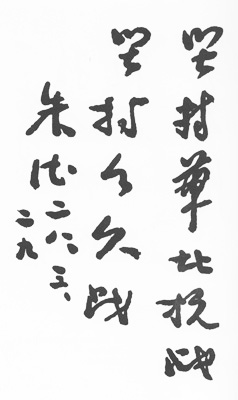 坚持華北抗战
坚持々久战
朱德 二八、三、
二九